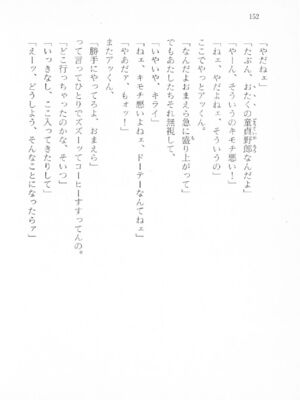 152
「やだねェ」
「たぶん、おたくの童貞野郎なんだよ」
「やーん、そういうのキモチ悪い!」
「ねェ、やだよねェ、そういうの」
ここでやっとアッくん。
「なんだよおまえら急に盛り上がって」
でもあたしたちそれ無視して、
「いやいや、キライ」
「ねェ、キモチ悪いよねェ、ドーテーなんてねェ」
「やあだァ、もォッ!」
またアッくん。
「勝手にやってろよ、おまえら」
って言ってひとりでズズーッてコーヒーすすってんの。
「どこ行っちゃったのかな、そいつ」
「いっきなし、ここ入ってきたりして」
「えーッ、どうしよう、そんなことになったらァ」